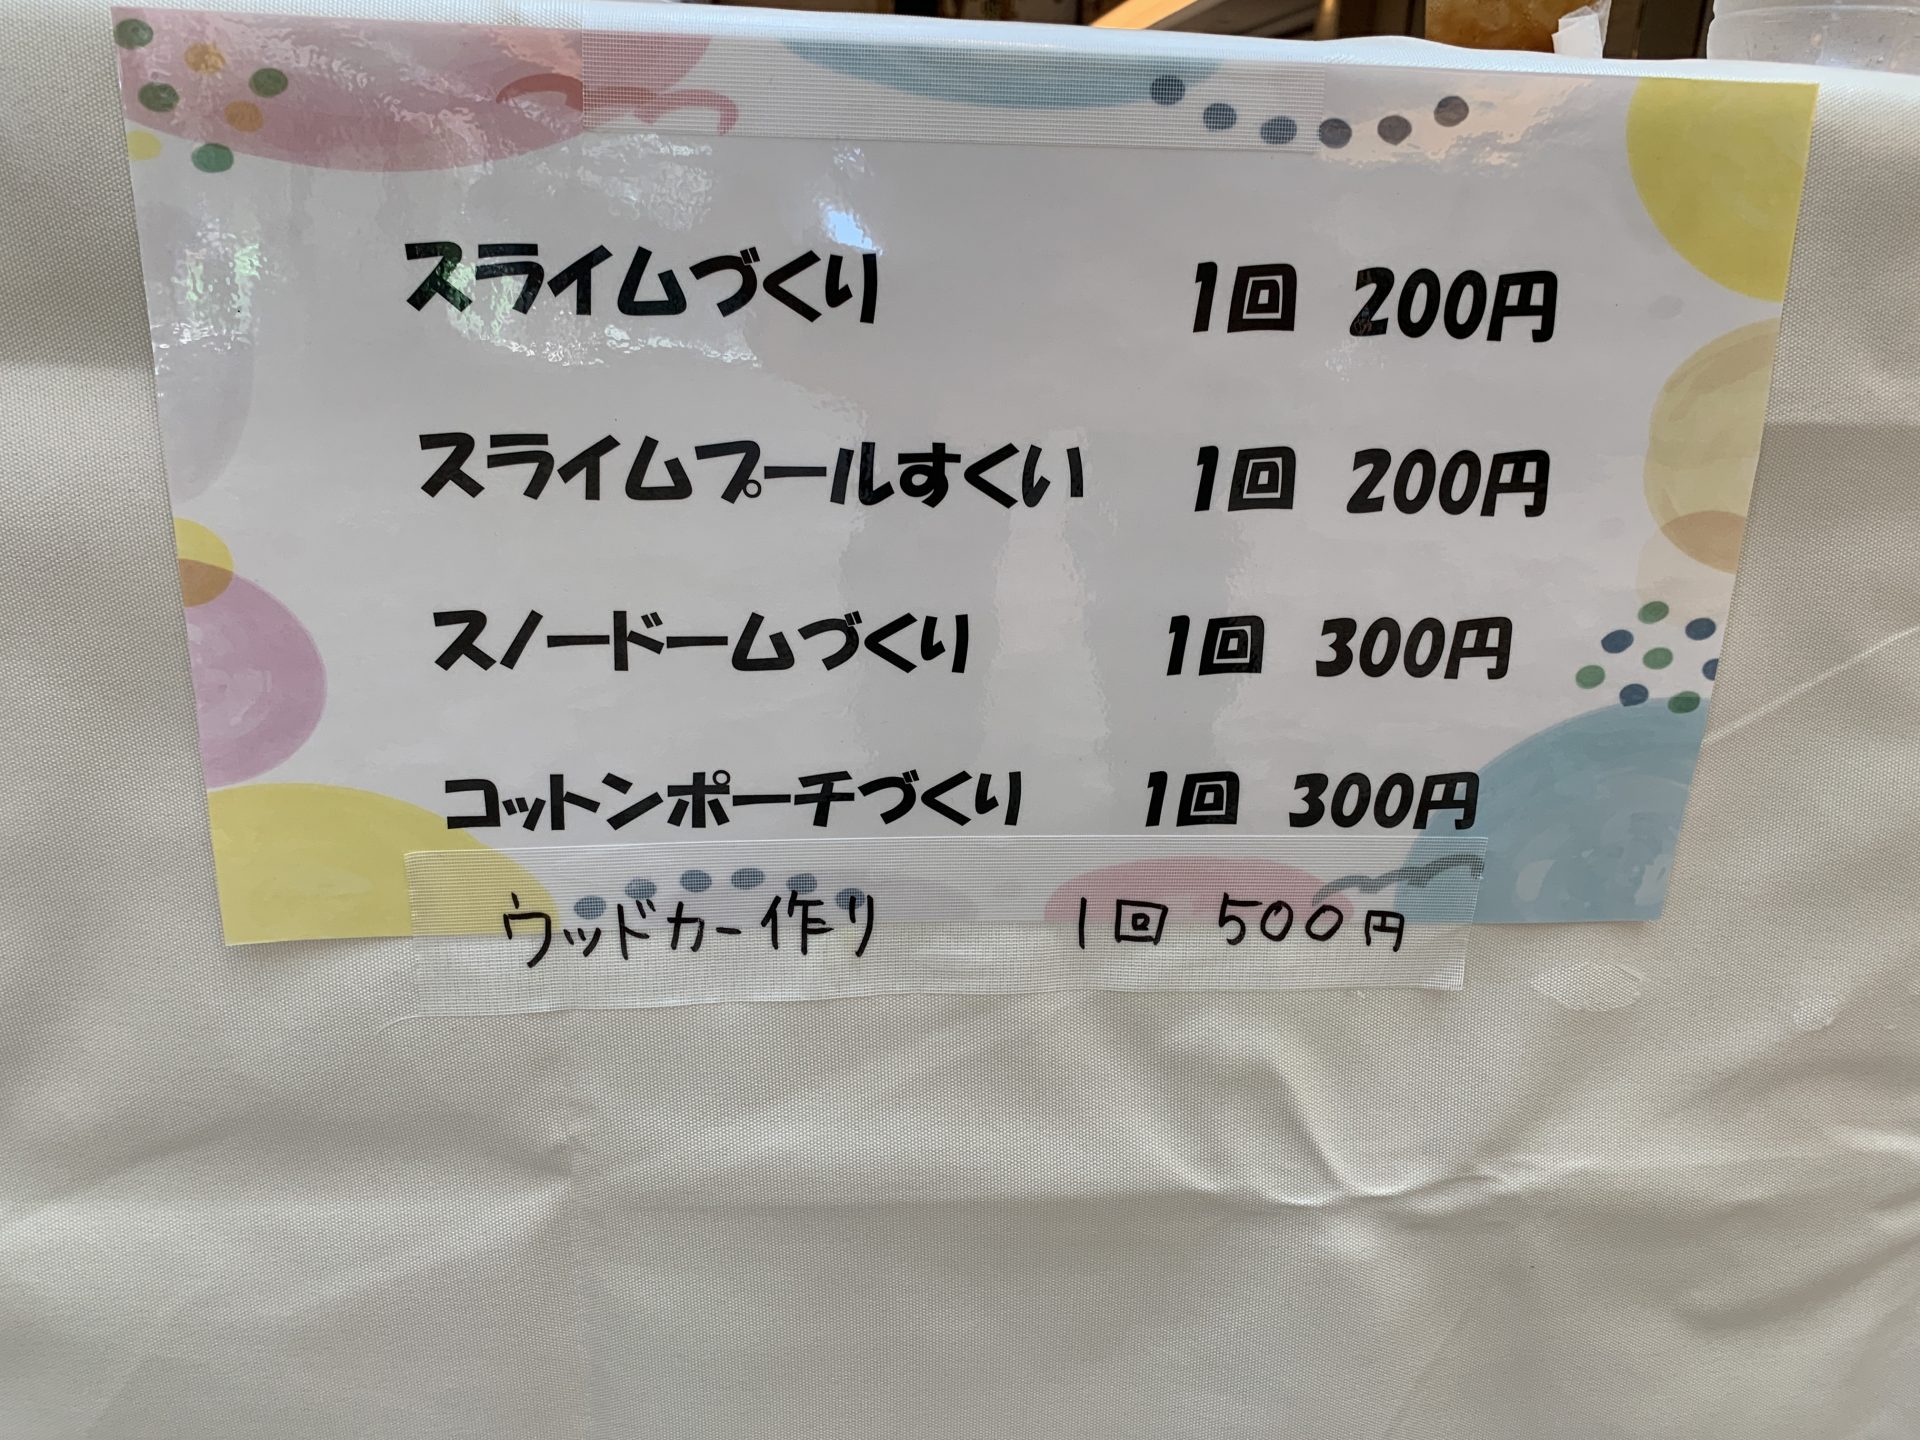 スライムづくり 1回 200円
スライムプールすくい 1回 200円
スノードームづくり 1回 300円
コットンポーチづくり 1回 300円
ウッドカー作り 1回 500円